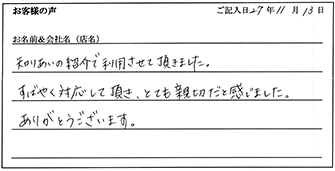 お客様の声 ご記入日27年11月13日
お名前&会社名(店名)
知りあいの紹介で利用させて頂きました。
すばやく対応して頂き、とても親切だと感じました。
ありがとうございます。